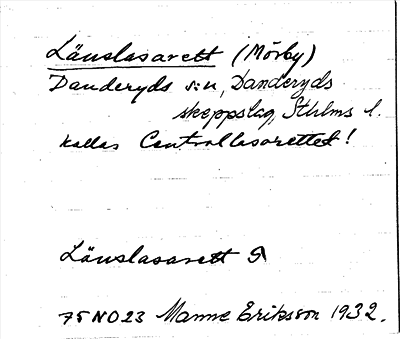 Länslasarett (Mörby)
Danderyds s:n, Danderyds
skeppslag, Sthlms l.
kallas Centrallasarettet!
Länslasarett
75 NO 23 Manne Eriksson 1932.